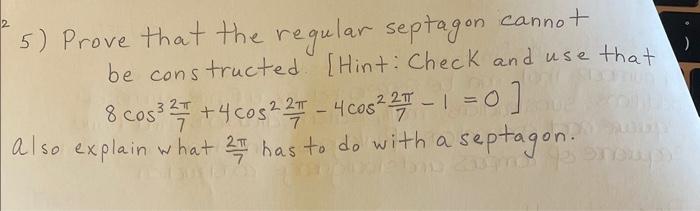 2
5) Prove that the regular septagon cannot
be constructed. [Hint: Check and use that
8 cos³ 2π/7 + 4 cos² 2π/7 - 4 cos² 2π/7 - 1 = 0 ]
also explain what 2π/7 has to do with a septagon.